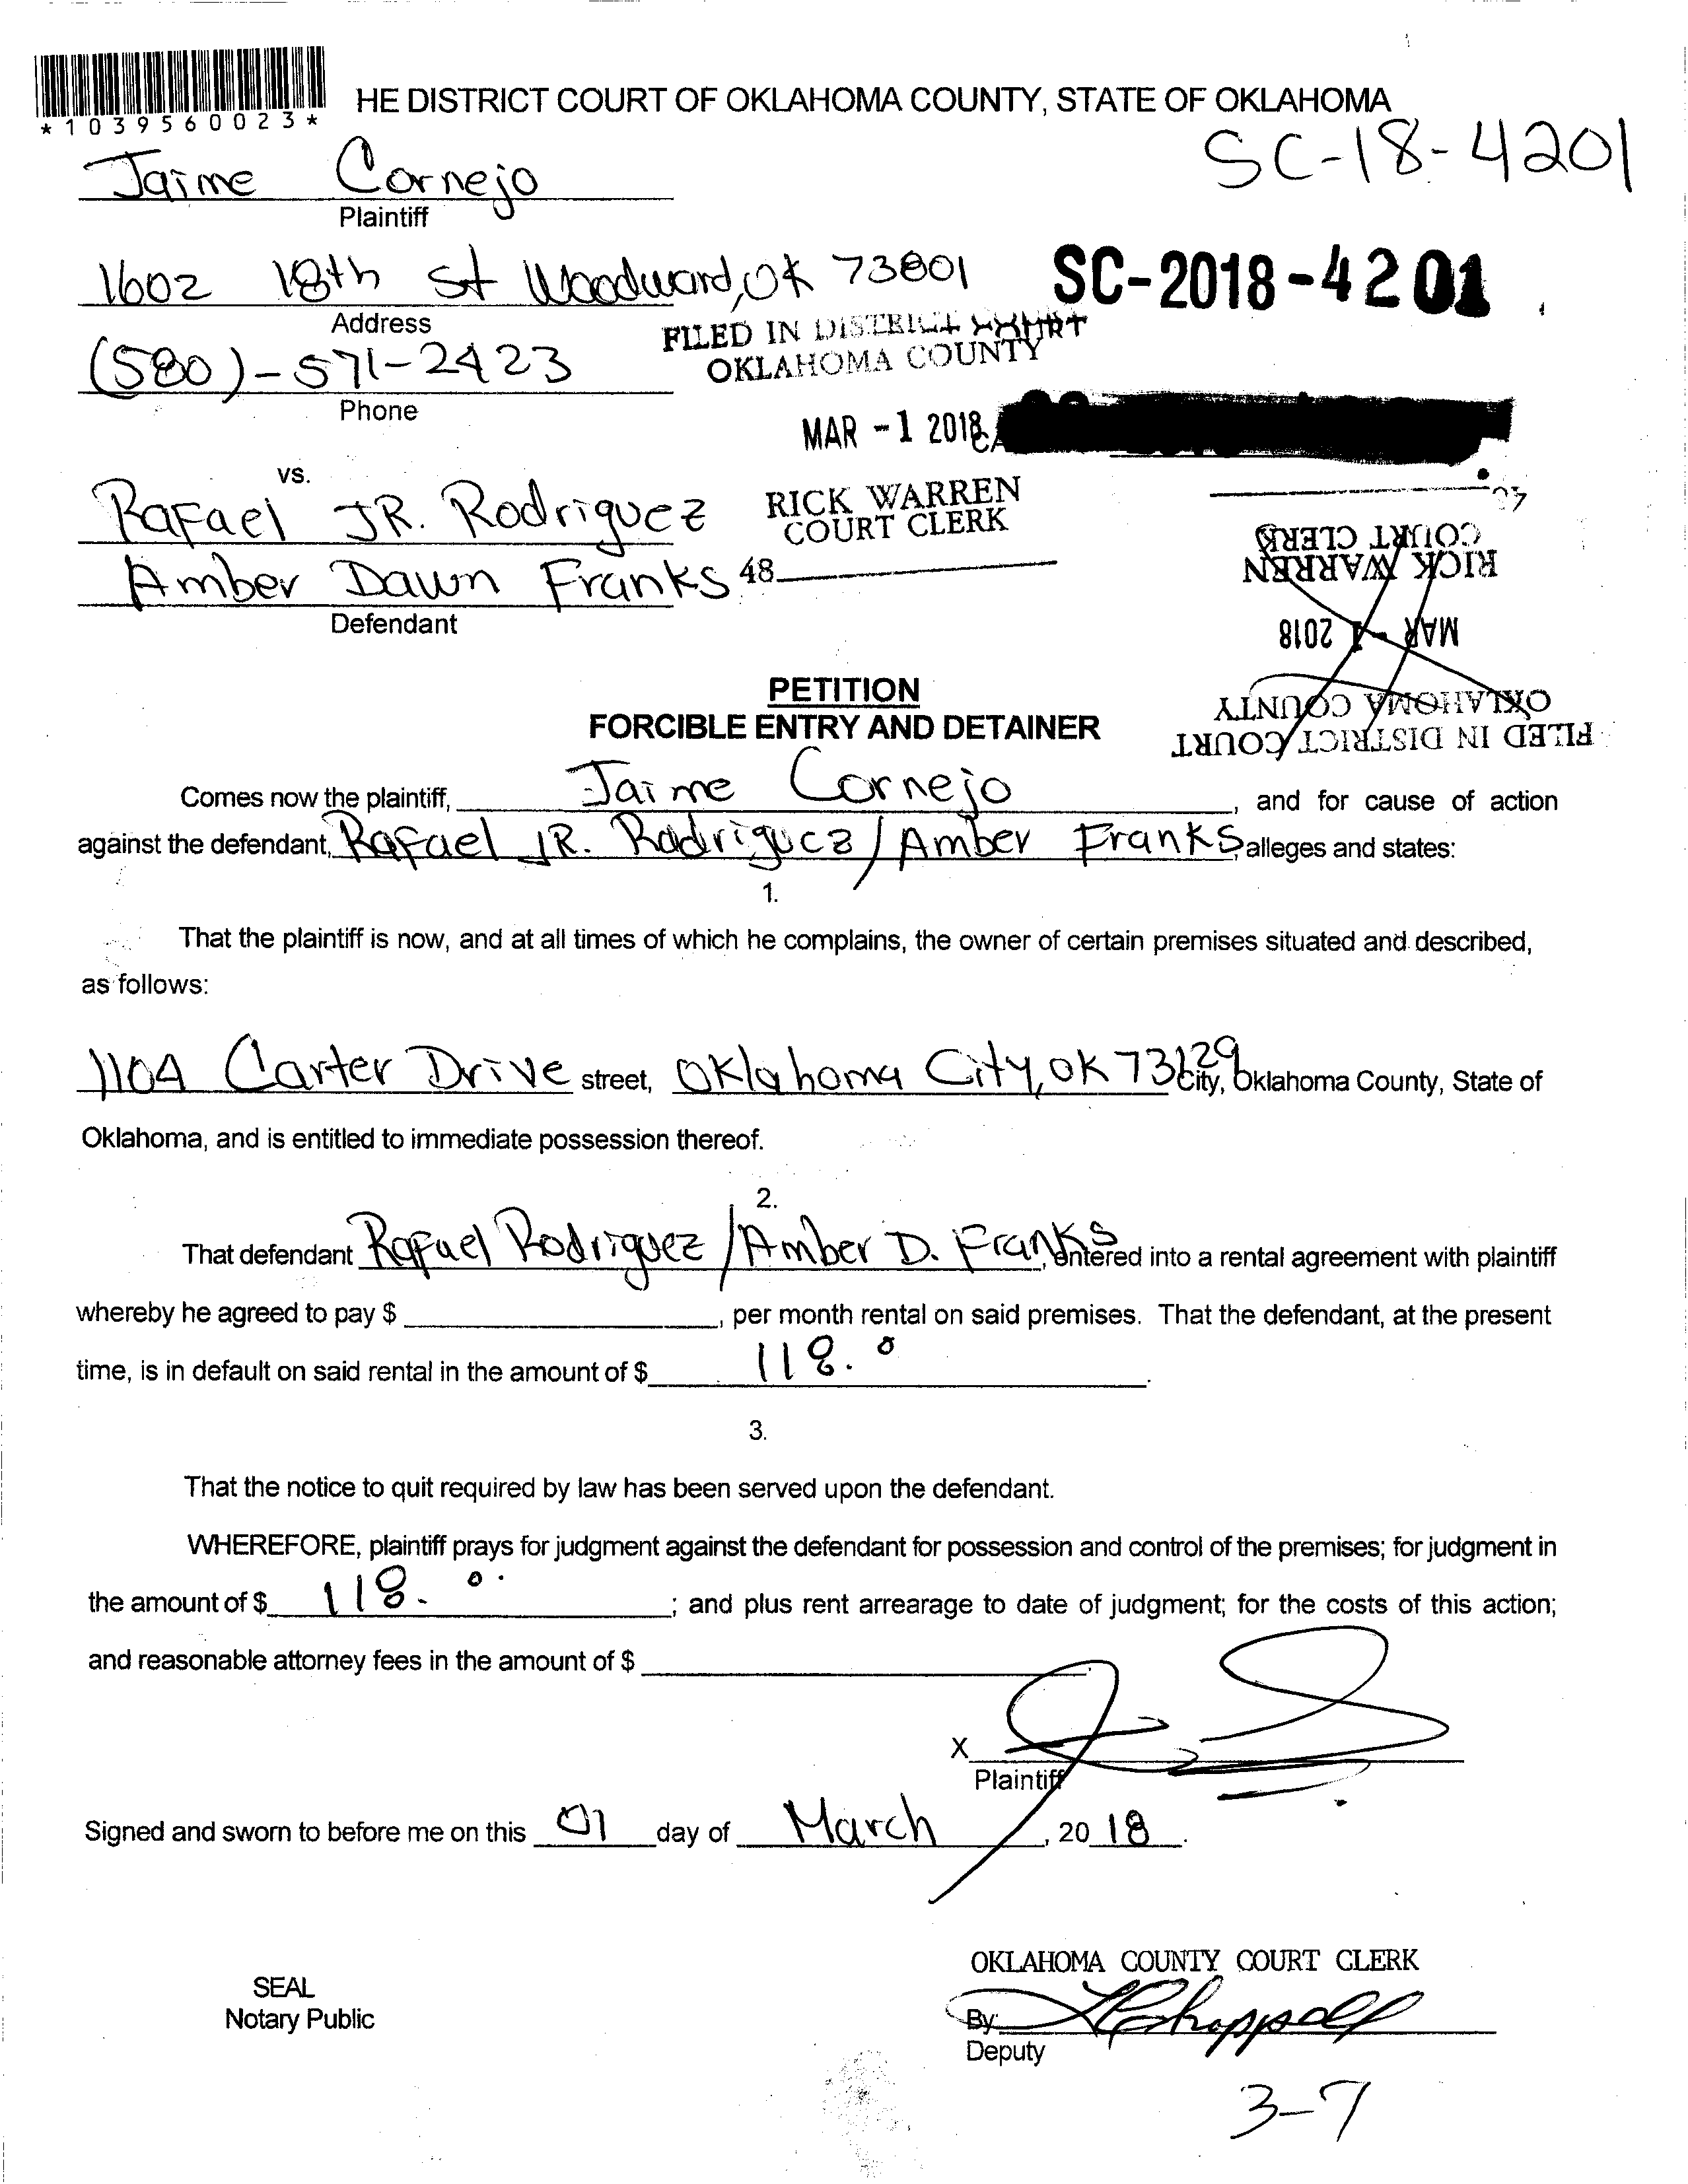 *1039560023*
HE DISTRICT COURT OF OKLAHOMA COUNTY, STATE OF OKLAHOMA
SC-18-4201
Jaime Cornejo
Plaintiff
1602 18th St Woodward, OK 73801
SC-2018-4201
Address
FILED IN DISTRICT COURT
OKLAHOMA COUNTY
(580)-571-2423
Phone
MAR -1 2018
vs.
Rafael JR. Rodriguez
RICK WARREN
COURT CLERK
Amber Dawn Franks
48
Defendant
FILED IN DISTRICT COURT
OKLAHOMA COUNTY
MAR - 1 2018
RICK WARREN
COURT CLERK
PETITION
FORCIBLE ENTRY AND DETAINER
Comes now the plaintiff, Jaime Cornejo, and for cause of action
against the defendant, Rafael JR. Rodriguez / Amber Franks, alleges and states:
1.
That the plaintiff is now, and at all times of which he complains, the owner of certain premises situated and described,
as follows:
1104 Carter Drive street, Oklahoma City, OK 73129 City, Oklahoma County, State of
Oklahoma, and is entitled to immediate possession thereof.
2.
That defendant Rafael Rodriguez / Amber D. Franks, entered into a rental agreement with plaintiff
whereby he agreed to pay $ , per month rental on said premises. That the defendant, at the present
time, is in default on said rental in the amount of $ 118.0.
3.
That the notice to quit required by law has been served upon the defendant.
WHEREFORE, plaintiff prays for judgment against the defendant for possession and control of the premises; for judgment in
the amount of $ 118. 0.; and plus rent arrearage to date of judgment; for the costs of this action;
and reasonable attorney fees in the amount of $ .
X
Plaintiff
Signed and sworn to before me on this 01 day of March, 20 18.
OKLAHOMA COUNTY COURT CLERK
SEAL
Notary Public
By: Chappell
Deputy
3-7